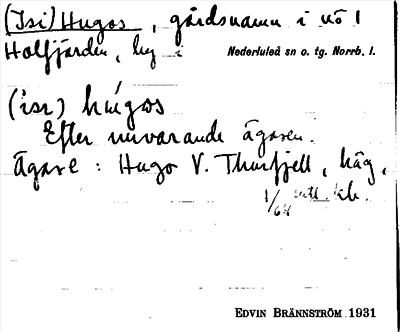 (Isi) Hugos, gårdsnamn i nö 1
Holfjärden, by i Nederluleå sn o. tg. Norrb. l.
(isr) húgos
Efter nuvarande ägaren.
Ägare: Hugo V. Thurfjell, häg,
1/64 mtl. kr.
EDVIN BRÄNNSTRÖM 1931